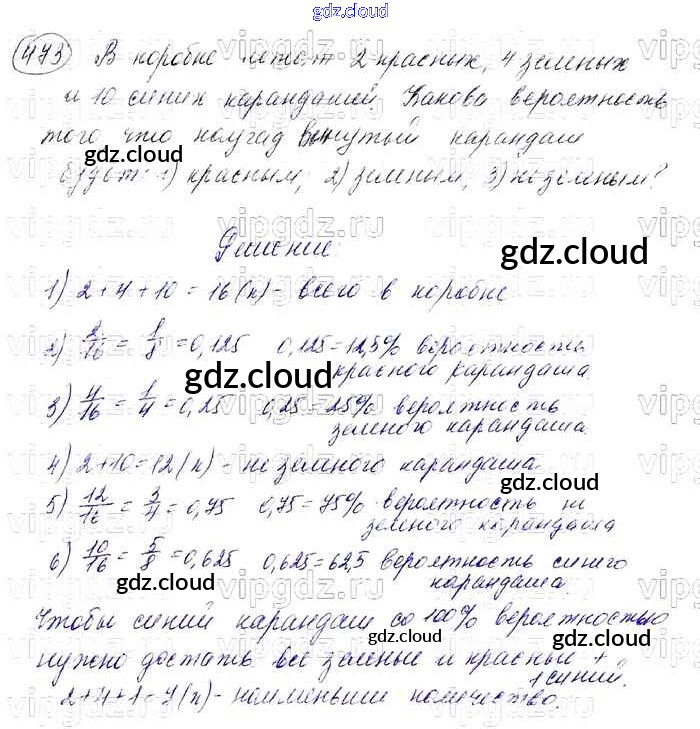 gdz.cloud
473) В коробке лежат 2 красных, 4 зеленых
и 10 синих карандашей. Какова вероятность
того что наугад вынутый карандаш
будет: 1) красным, 2) зеленым, 3) не зеленым?
Решение:
1) 2+4+10=16(к) - всего в коробке
2) 2/16 = 1/8 = 0,125 0,125=12,5% вероятность
красного карандаша
3) 4/16 = 1/4 = 0,25 0,25=25% вероятность
зеленого карандаша
4) 2+10=12(к) - не зеленого карандаша
5) 12/16 = 3/4 = 0,75 0,75=75% вероятность не
зеленого карандаша
6) 10/16 = 5/8 = 0,625 0,625=62,5 вероятность синего
карандаша.
Чтобы синий карандаш со 100% вероятностью
нужно достать все зеленые и красные +
1 синий.
2+4+1=7(к) - наименьшее количество.
gdz.cloud
gdz.cloud
gdz.cloud
gdz.cloud
gdz.cloud
gdz.cloud
gdz.cloud
gdz.cloud
gdz.cloud
vipgdz.ru